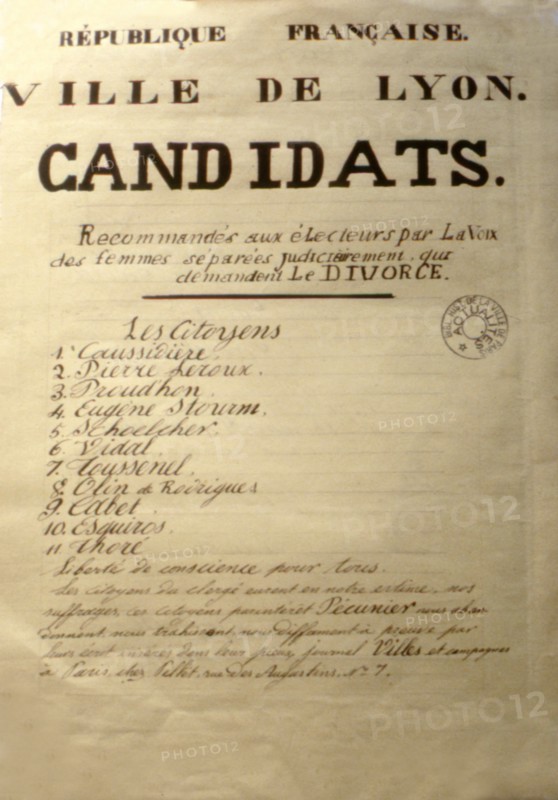 RÉPUBLIQUE FRANÇAISE.
VILLE DE LYON.
CANDIDATS.
Recommandés aux électeurs par La Voix
des femmes séparées judiciairement qui
demandent Le DIVORCE.
Les Citoyens
1. Caussidière.
2. Pierre Leroux.
3. Proudhon.
4. Eugène Stourm.
5. Schoelcher.
6. Vidal.
7. Toussenel.
8. Olin de Rodrigues
9. Cabet.
10. Esquiros.
11 Thoré
Liberté de conscience pour tous.
Les citoyens du clergé eurent en notre estime, nos
suffrages, ces citoyens par interêt Pécunier nous aban-
donnent, nous trahissent, nous diffament à preuve par
leurs écrit insérés dans leur pieux journal Villes et campagnes
à Paris, chez Pillet, rue des Augustins, No 7.
BIBL. HIST. DE LA VILLE DE PARIS
ACTUALITÉS
PHOTO12